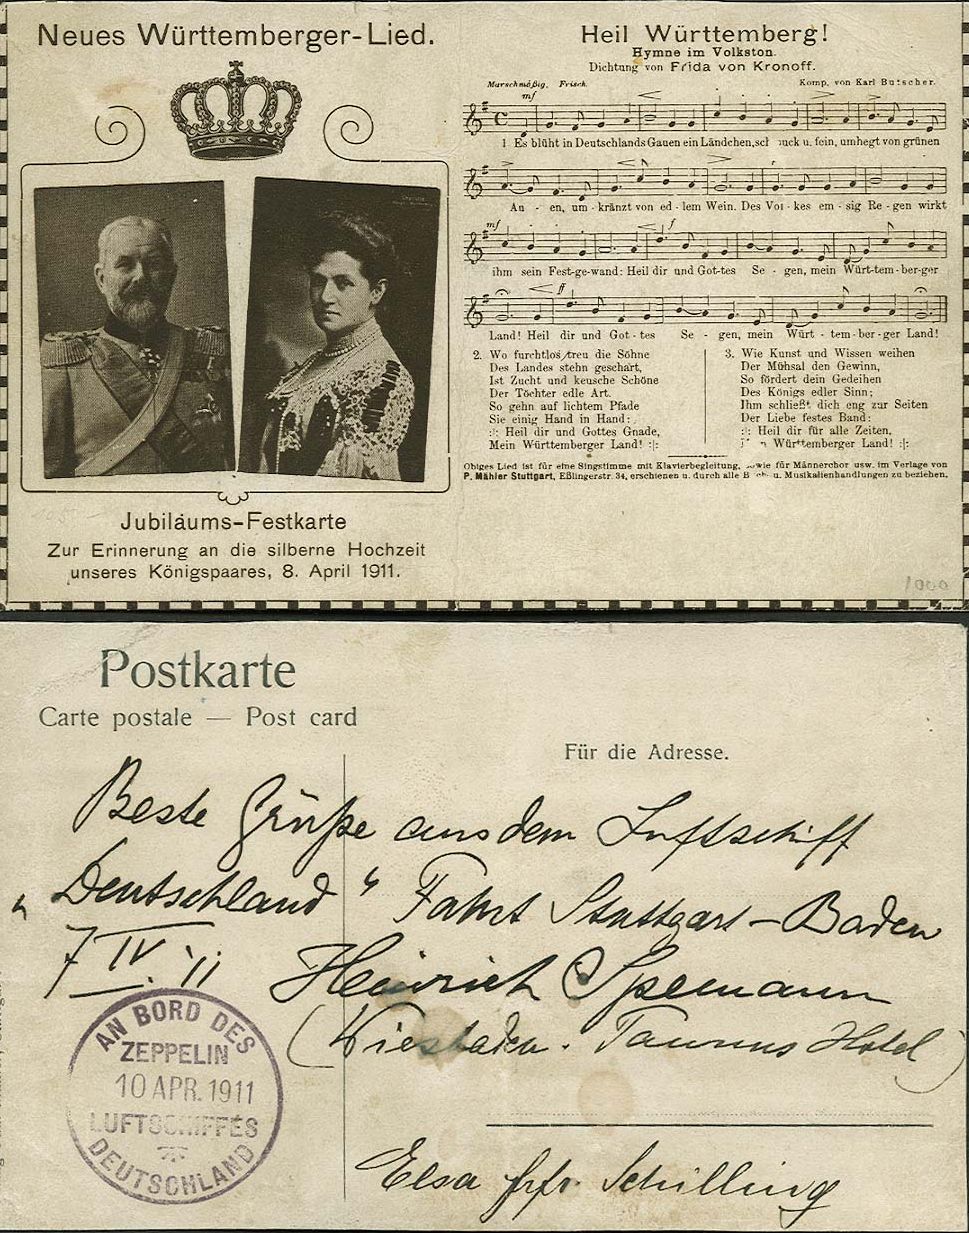 Neues Württemberger-Lied.
Jubiläums-Festkarte
Zur Erinnerung an die silberne Hochzeit
unseres Königspaares, 8. April 1911.
Heil Württemberg!
Hymne im Volkston.
Dichtung von Frida von Kronoff.
Marschmäßig, Frisch.
Komp. von Karl Butscher.
mf
1 Es blüht in Deutschlands Gauen ein Ländchen, u. fein, umhegt von grünen
Au - en, um - kränzt von ed - lem Wein. Des Vol - kes em - sig Re - gen wirkt
mf f
ihm sein Fest-ge-wand: Heil dir und Got-tes Se - gen, mein Würt-tem-ber-ger
ff
Land! Heil dir und Got - tes Se - gen, mein Würt - tem - ber - ger Land!
2. Wo furchtlos/treu die Söhne
Des Landes stehn geschart,
Ist Zucht und keusche Schöne
Der Töchter edle Art.
So gehn auf lichtem Pfade
Sie einig Hand in Hand:
:|: Heil dir und Gottes Gnade,
Mein Württemberger Land! :|:
3. Wie Kunst und Wissen weihen
Der Mühsal den Gewinn,
So fördert dein Gedeihen
Des Königs edler Sinn;
Ihm schließt dich eng zur Seiten
Der Liebe festes Band:
:|: Heil dir für alle Zeiten,
Württemberger Land! :|:
Obiges Lied ist für eine Singstimme mit Klavierbegleitung, sowie für Männerchor usw. im Verlage von
P. Mähler Stuttgart, Eßlingerstr. 34, erschienen u. durch alle u. Musikalienhandlungen zu beziehen.
1000
Postkarte
Carte postale — Post card
Für die Adresse.
Beste Grüße aus dem Luftschiff
„Deutschland“ Fahrt Stuttgart – Baden
7 IV. 11
Heinrich Spemann
(Wiesbaden. Taunus Hotel)
AN BORD DES
ZEPPELIN
10 APR. 1911
LUFTSCHIFFES
DEUTSCHLAND
Elsa frfr. Schilling